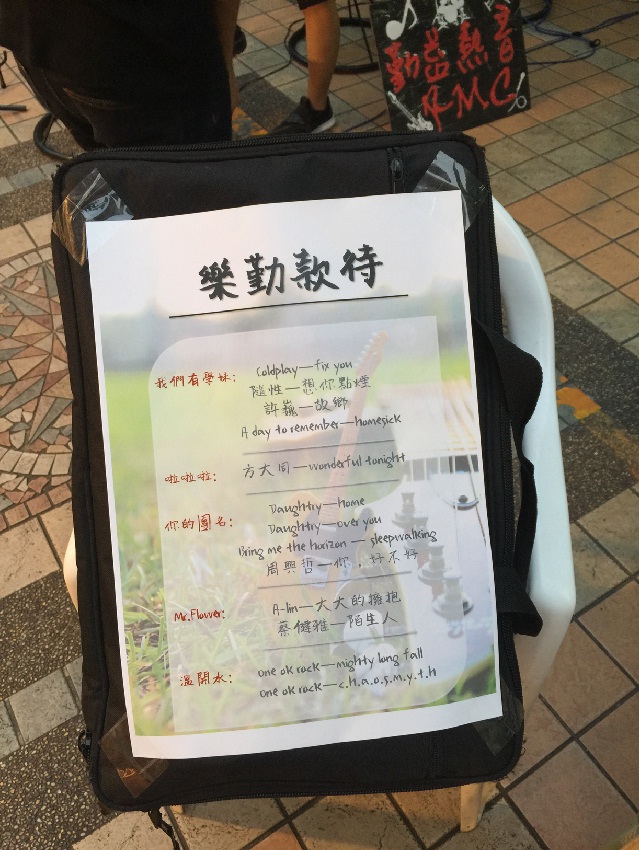 勤感熱音
AMC
樂勤款待
我們有學妹: Coldplay—fix you
隨性—想你點煙
許巍—故鄉
A day to remember—homesick
啦啦啦: 方大同—wonderful tonight
你的團名: Daughtry—home
Daughtry—over you
Bring me the horizon—sleepwalking
周興哲—你,好不好
Mr.Flower: A-lin—大大的擁抱
蔡健雅—陌生人
溫開水: one ok rock—mighty long fall
one ok rock—c.h.a.o.s.m.y.t.h